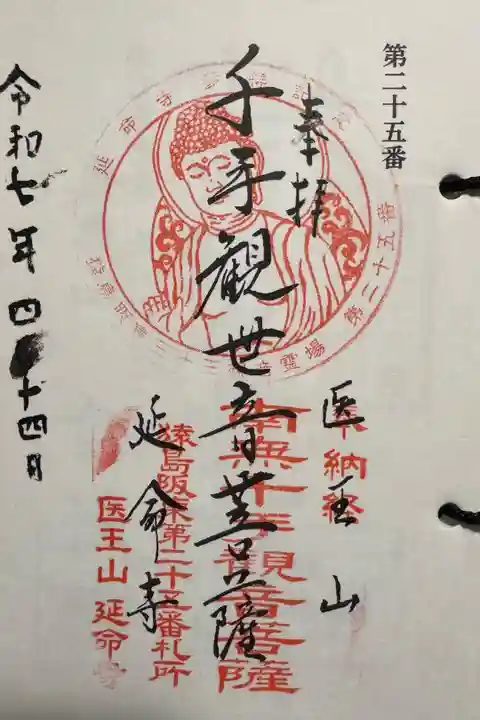 第二十五番
奉拝
医王山
千手観世音菩薩
延命寺
令和七年四月十四日
奉納経
南無千手観音菩薩
猿島阪東第二十五番札所
医王山 延命寺
延命寺
第二十五番
霊場